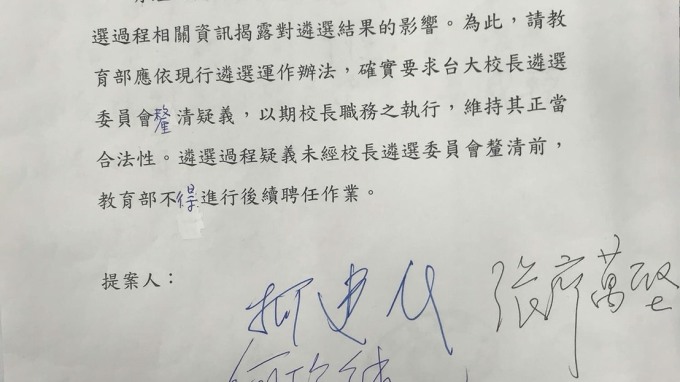 選過程相關資訊揭露對遴選結果的影響。為此，請教
育部應依現行遴選運作辦法，確實要求台大校長遴選
委員會釐清疑義，以期校長職務之執行，維持其正當
合法性。遴選過程疑義未經校長遴選委員會釐清前，
教育部不得進行後續聘任作業。
提案人：
張廖萬堅